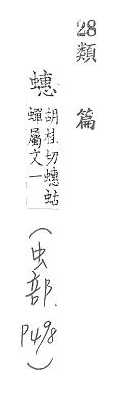 28
類篇
蟪胡桂切蟪蛄
蟬屬文一
(虫部.
P498)